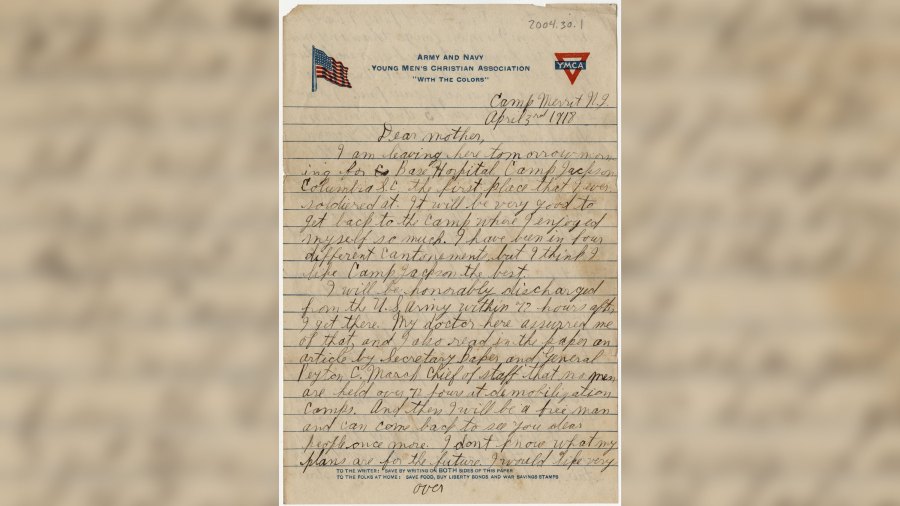 2004.30.1
ARMY AND NAVY
YOUNG MEN'S CHRISTIAN ASSOCIATION
"WITH THE COLORS"
YMCA
Camp Merrit N.J.
April 3rd 1918
Dear mother,
I am leaving here tomorrow morn
ing for Base Hospital Camp Jackson
Columbia S.C. the first place that I ever
soldiered at. It will be very good to
get back to the Camp where I enjoyed
myself so much. I have been in four
different Cantonements but I think I
like Camp Jackson the best.
I will be honorably discharged
from the U.S. Army within 72 hours after
I get there. My doctor here assurred me
of that, and I also read in the paper an
article by Secretary Baker and General
Peyton C. Marsh Chief of staff that no men
are held over 72 hours at demobilization
Camps. And then I will be a free man
and can come back to see you dear
people once more. I dont know what my
plans are for the future. I would like very
TO THE WRITER: SAVE BY WRITING ON BOTH SIDES OF THIS PAPER
TO THE FOLKS AT HOME: SAVE FOOD, BUY LIBERTY BONDS AND WAR SAVINGS STAMPS
over